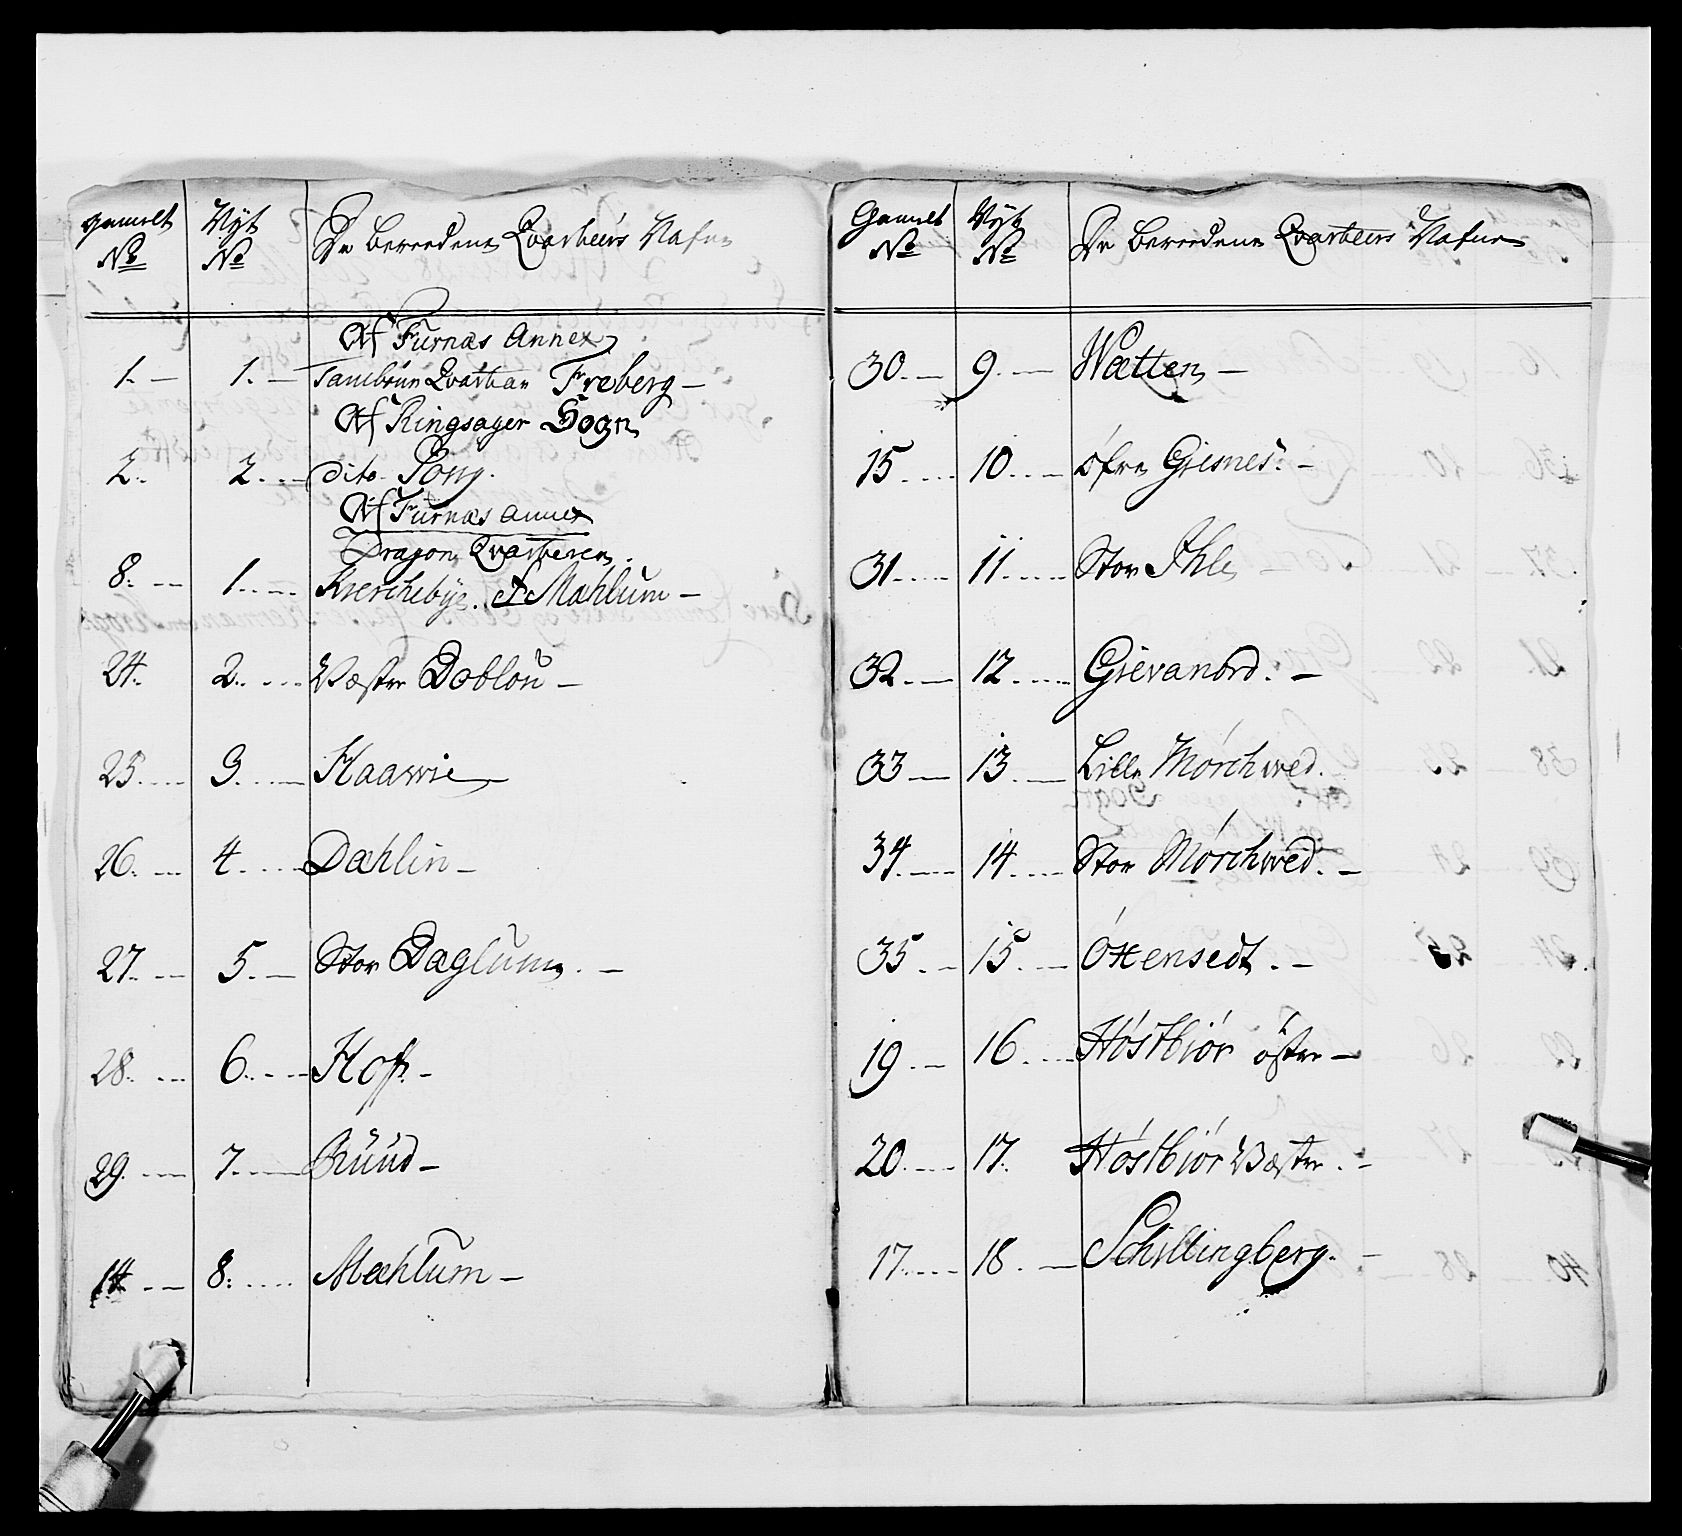 gamelt Nye De bereedene Qvarteers Nafne
No No
Af Furnæs Annex
1. 1. Tambour Qvarteer Freberg
Af Ringsager Sogn
2. 2. dito Pong.
Af Furnæs annex
Dragon Qvarteren.
8. 1. Kverchebye. & Mæhlum
24. 2. Væster Doblou
25. 3. Haawie
26. 4. Dæhlin
27. 5. Stor Dæglum.
28. 6. Hof.
29. 7. Ruud
14 8. Mæhlum
Gamelt Nye De bereedene Qvarteers Nafne
No No
30. 9. Wætten
15 10. öfre Gisnes.
31 11. Stor Ihle
32. 12. Grevanord.
33 13. Lille Mörchwed.
34. 14. Stor Mörchwed.
35 15. Öxensedt.
19 16. Höstbiör öster
20. 17. Höstbiör Væster.
17. 18. Schillingberg.